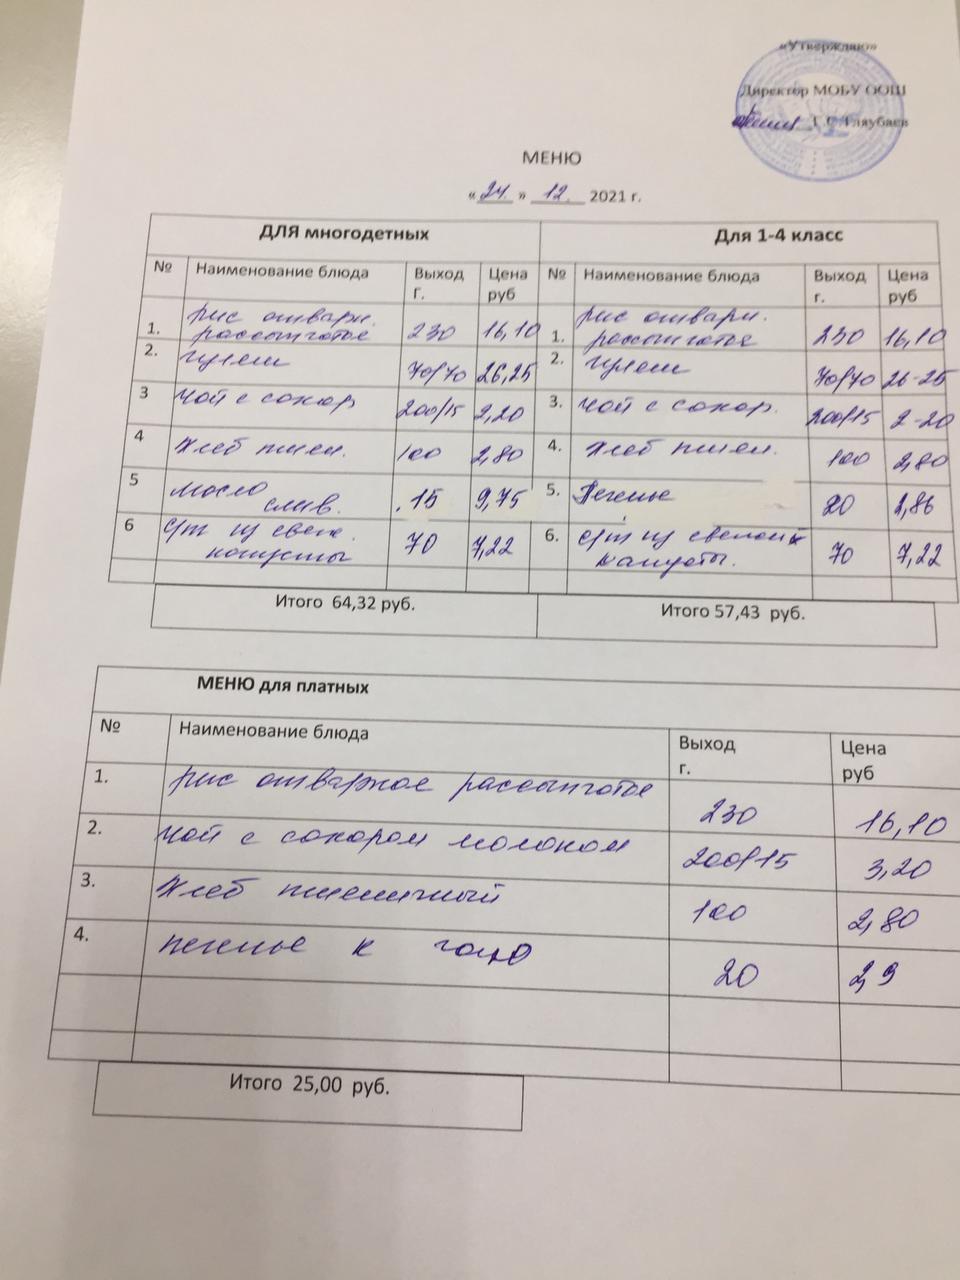 «Утверждаю»
Директор МОБУ ООШ
МЕНЮ
« 24. » 12. 2021 г.
ДЛЯ многодетных Для 1-4 класс
№ Наименование блюда Выход г. Цена руб № Наименование блюда Выход г. Цена руб
1. рис отварн. рассыпчатое 230 16,10 1. рис отварн. рассыпчатое 230 16,10
2. гуляш 70/70 26,25 2. гуляш 70/70 26-25
3 чай с сахар 200/15 2,20 3. чай с сахар. 200/15 2-20
4 хлеб пшен. 100 2,80 4. хлеб пшен. 100 2,80
5 масло слив. 15 9,75 5. Печенье 20 2,86
6 с/т из свеж. капусты 70 7,22 6. с/т из свежой капусты. 70 7,22
Итого 64,32 руб. Итого 57,43 руб.
МЕНЮ для платных
№ Наименование блюда Выход г. Цена руб
1. рис отварное рассыпчатое 230 16,10
2. чай с сахаром молоком 200/15 3,20
3. хлеб пшеничный 100 2,80
4. печенье к чаю 20 2,9
Итого 25,00 руб.